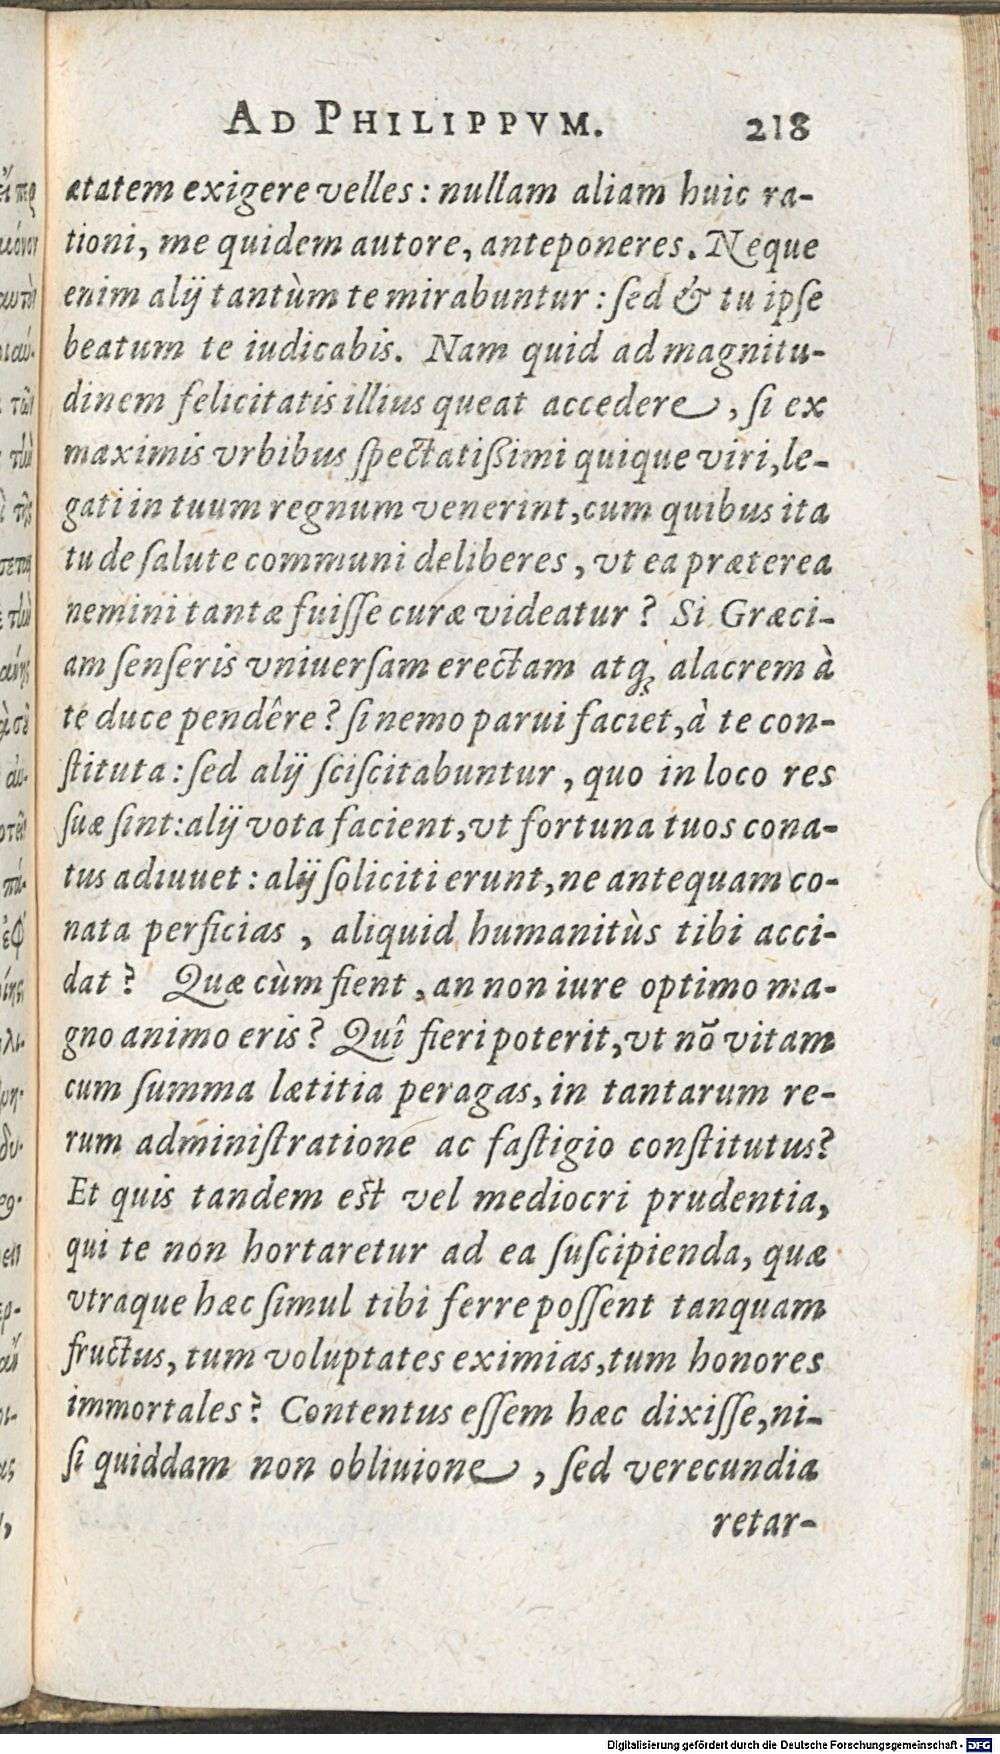 AD PHILIPPVM. 218
ætatem exigere velles: nullam aliam huic ra-
tioni, me quidem autore, anteponeres. Neque
enim alij tantùm te mirabuntur: sed & tu ipse
beatum te iudicabis. Nam quid ad magnitu-
dinem felicitatis illius queat accedere, si ex
maximis vrbibus spectatißimi quique viri, le-
gati in tuum regnum venerint, cum quibus ita
tu de salute communi deliberes, vt ea præterea
nemini tantæ fuisse curæ videatur? Si Græci-
am senseris vniuersam erectam atq; alacrem à
te duce pendêre? si nemo parui faciet, à te con-
stituta: sed alij sciscitabuntur, quo in loco res
suæ sint: alij vota facient, vt fortuna tuos cona-
tus adiuuet: alij soliciti erunt, ne antequam co-
nata perficias, aliquid humanitùs tibi acci-
dat? Quæ cùm fient, an non iure optimo ma-
gno animo eris? Quî fieri poterit, vt nõ vitam
cum summa lætitia peragas, in tantarum re-
rum administratione ac fastigio constitutus?
Et quis tandem est vel mediocri prudentia,
qui te non hortaretur ad ea suscipienda, quæ
vtraque hæc simul tibi ferre possent tanquam
fructus, tum voluptates eximias, tum honores
immortales? Contentus essem hæc dixisse, ni-
si quiddam non obliuione, sed verecundia
retar-
Digitalisierung gefördert durch die Deutsche Forschungsgemeinschaft - DFG